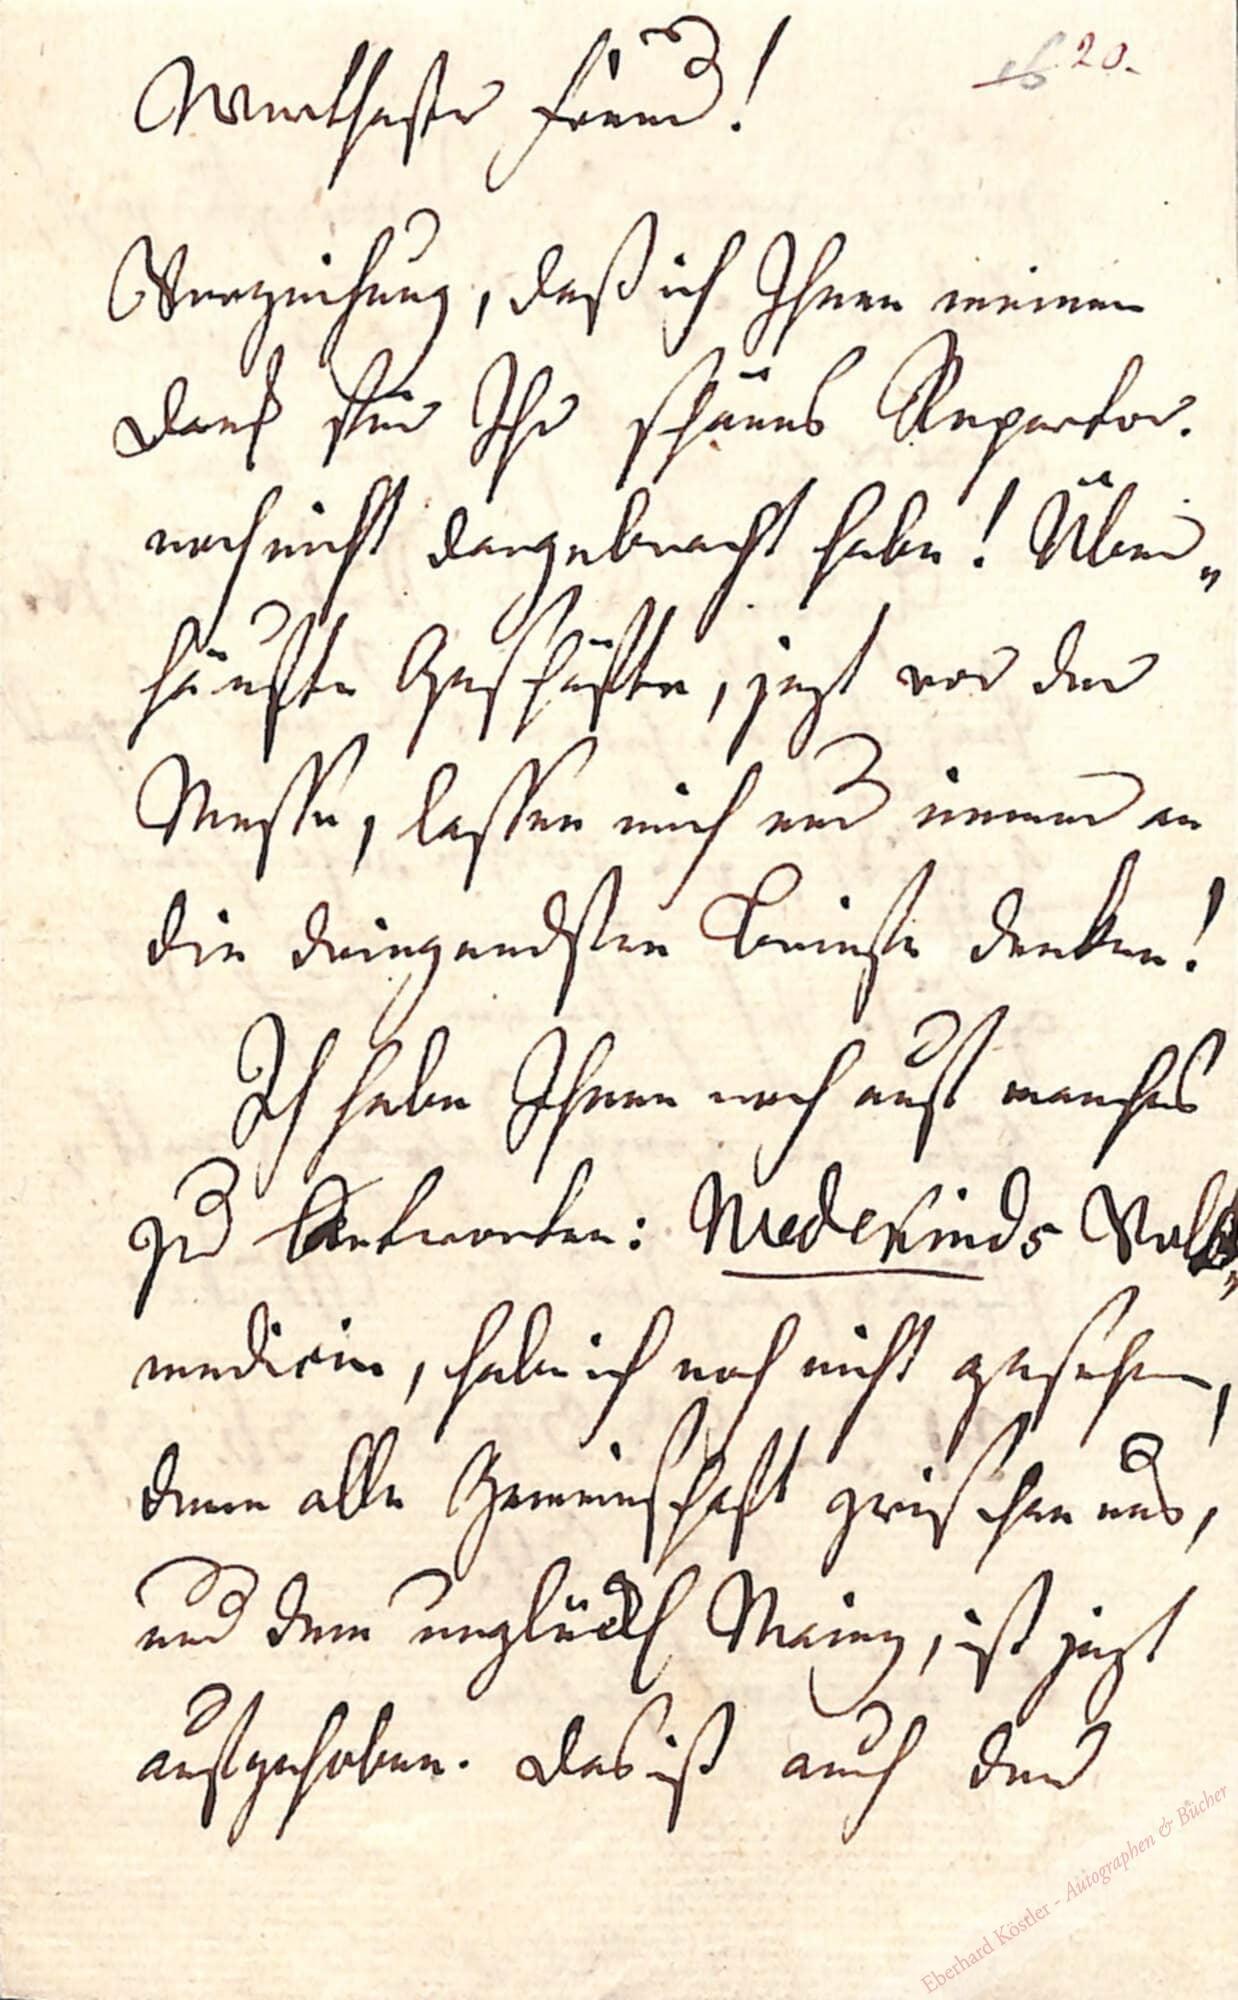 20.
Werthester Freund!
Verzeihung, daß ich Ihnen meinen
Dank für Ihr schönes Repertor.
noch nicht dargebracht habe! Über„
häufte Geschäfte, jezt vor der
Messe, lassen mich nur immer an
die dringendsten Briefe denken!
Ich habe Ihnen noch auf manches
zu antworten: Wedekinds Volks„
medicin, habe ich noch nicht gesehen,
denn alle Gemeinschaft zwischen uns,
und dem unglückl Mainz, ist jezt
aufgehoben. Das ist auch der
Eberhard Köstler - Autographen & Bücher